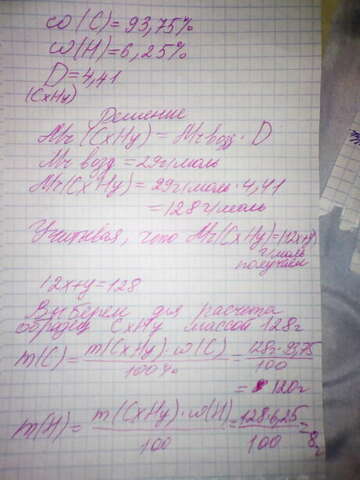 ω(C)=93,75%
ω(H)=6,25%
D=4,41
(CxHy)
Решение
Mr(CxHy)=Mr возд·D
Mr возд=29г/моль
Mr(CxHy)=29г/моль·4,41
=128г/моль
Учитывая, что Mr(CxHy)=(12x+y)
г/моль
получаем
12x+y=128
Выберем для расчета
образец CxHy массой 128г
m(C)=m(CxHy)·ω(C)/100%=128г·93,75/100
=120г
m(H)=m(CxHy)·ω(H)/100=128·6,25/100=8г